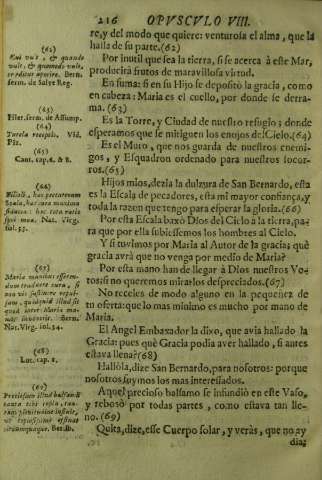 216 OPUSCULO VIII.
re, y del modo que quiere: venturosa el alma, que la
halla de su parte. (62)
Por inutil que sea la tierra, si se acerca à este Mar,
producirà frutos de maravillosa virtud.
En suma: si en su Hijo se depositò la gracia, como
en cabeza: Maria es el cuello, por donde se derra-
ma. (63)
Es la Torre, y Ciudad de nuestro refugio; donde
esperamos que se mitiguen los enojos del Cielo. (64)
Es el Muro, que nos guarda de nuestros enemi-
gos, y Esquadron ordenado para nuestros socor-
ros. (65)
Hijos mios, dezia la dulzura de San Bernardo, esta
es la Escala de pecadores, esta mi mayor confiança, y
toda la razon que tengo para esperar la gloria. (66)
Por esta Escala baxò Dios del Cielo à la tierra, pa-
ra que por ella subiessemos los hombres al Cielo.
Y si tuvimos por Maria al Autor de la gracia; què
gracia avrà que no venga por medio de Maria?
Por esta mano han de llegar à Dios nuestros Vo-
tos: si no queremos mirarlos despreciados. (67)
No receles de modo alguno en la pequeñez de
tu oferta: que lo mas minimo es mucho por mano de
Maria.
El Angel Embaxador la dixo, que avia hallado la
Gracia: pues què Gracia podia aver hallado, si antes
estava llena? (68)
Hallòla, dize San Bernardo, para nosotros: porque
nosotros soymos los mas interessados.
Aquel precioso balsamo se infundiò en este Vaso,
y rebosò por todas partes, como estava tan lle-
no. (69)
Quita, dize, esse Cuerpo solar, y veràs, que no ay
dia:
(62)
serm. de Salve Reg.
(63)
Pilar. serm. de Assump.
(64)
Turela receptis. Vid.
(65)
Cant. cap. 6. & 8.
(66)
Filioli, hæc peccatorum
Scala, hæc mea maxima
fiducia: hæc tota ratio
spei meæ. Nat. Virg.
fol. 35.
(67)
Nat. Virg. fol. 34.
(68)
Luc. cap. 1.
(69)